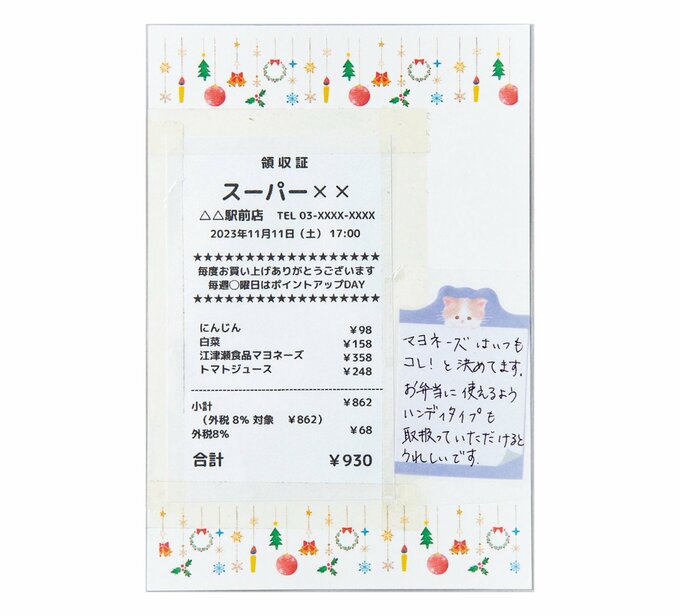 領収証
スーパー××
△△駅前店 TEL 03-XXXX-XXXX
2023年11月11日（土）17:00
★★★★★★★★★★★★★★★★★★★
毎度お買い上げありがとうございます
毎週〇曜日はポイントアップDAY
★★★★★★★★★★★★★★★★★★★
にんじん ￥98
白菜 ￥158
江津瀬食品マヨネーズ ￥358
トマトジュース ￥248
小計 ￥862
（外税 8% 対象 ￥862）
外税8% ￥68
合計 ￥930
マヨネーズはいつも
コレ！と決めてます。
お弁当に使えるよう
ハンディタイプも
取扱っていただけると
うれしいです。